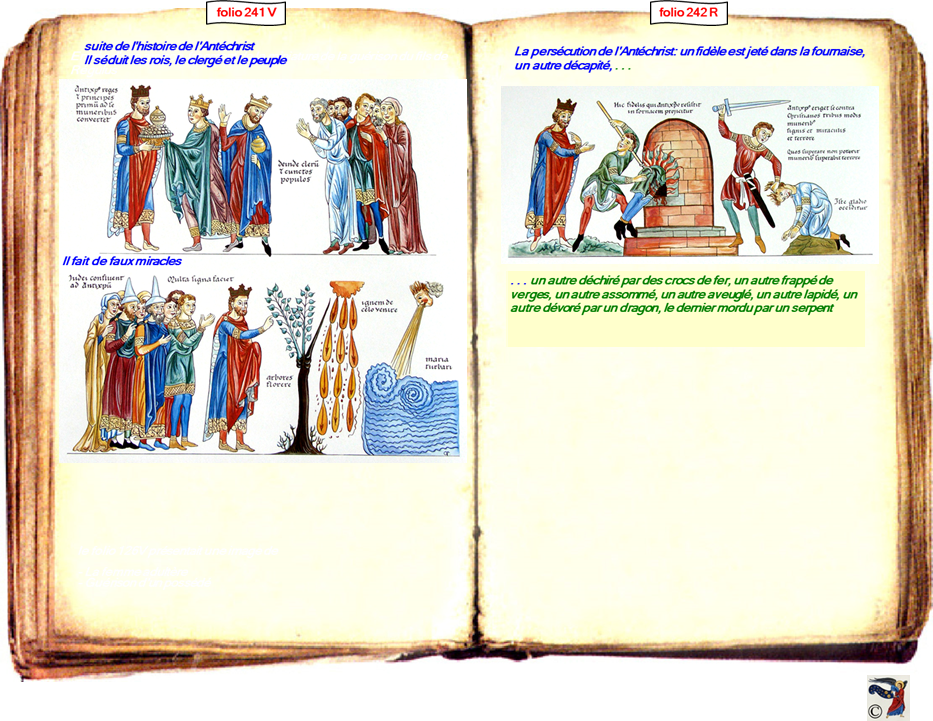 folio 241 V
suite de l'histoire de l'Antéchrist
Il séduit les rois, le clergé et le peuple
Antixpᵒ reges
⁊ principes
primū ad se
muneribus
convertet
deinde clerū
⁊ cunctos
populos
Il fait de faux miracles
Judei confluent
ad Antixpū
Multa signa faciet
arbores
florere
ignem de
celo venire
maria
turbari
folio 242 R
La persécution de l'Antéchrist: un fidèle est jeté dans la fournaise,
un autre décapité, . . .
Hic fidelis qui Antixpo resistit
in fornacem proicitur
Antixpᵒ eriget se contra
Christianos tribus modis
munerib⁹
signis et miraculis
et terrore
Quos superare non poterit
munerib superabit terrore
Iste gladio
occiditur
. . . un autre déchiré par des crocs de fer, un autre frappé de
verges, un autre assommé, un autre aveuglé, un autre lapidé, un
autre dévoré par un dragon, le dernier mordu par un serpent
©